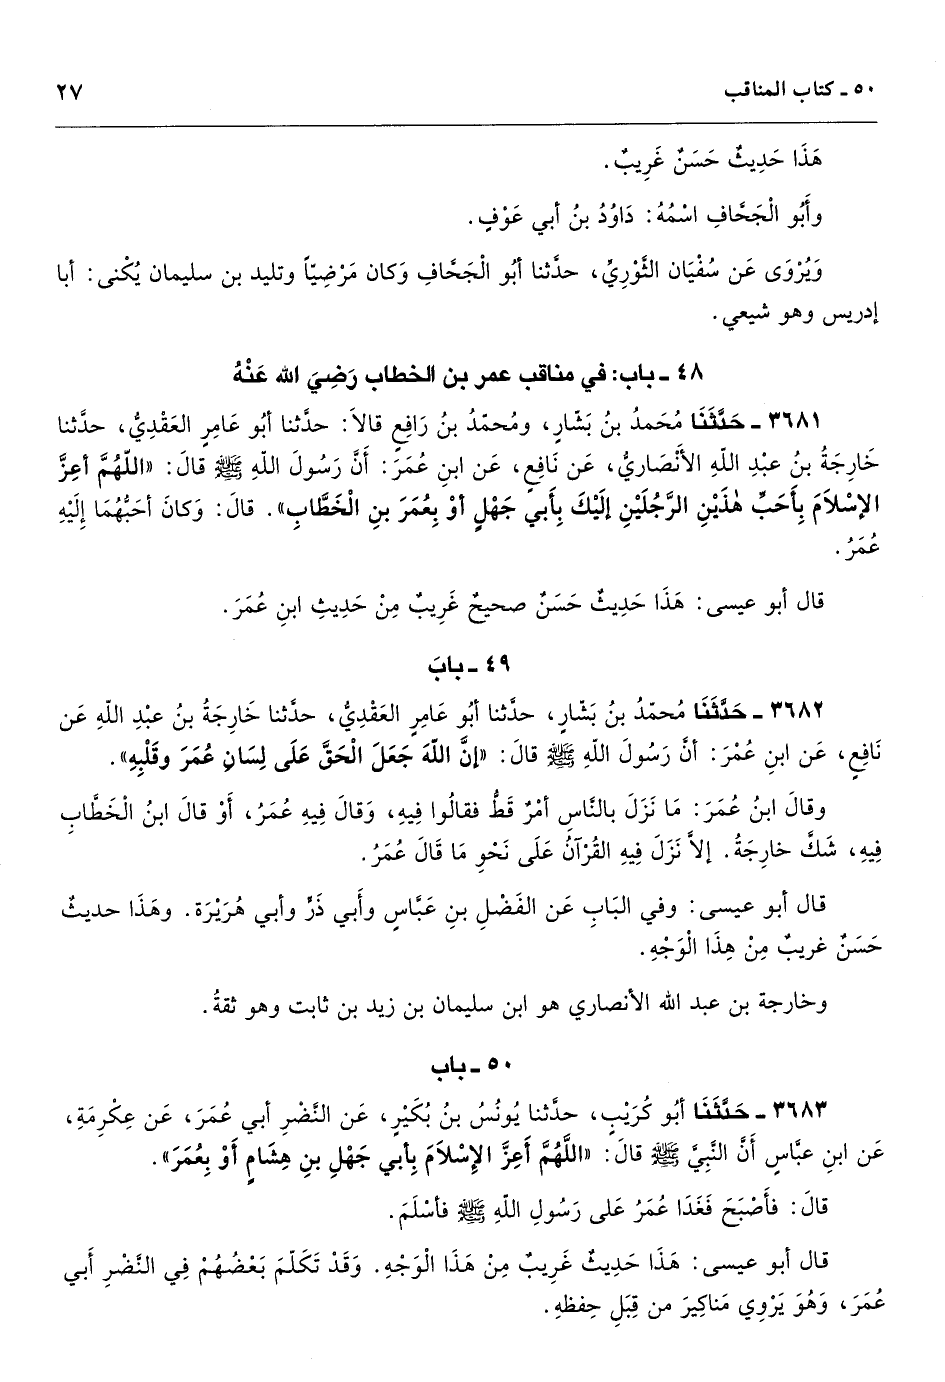 ٥٠ ـ كتاب المناقب ٢٧
هَذَا حَدِيثٌ حَسَنٌ غَرِيبٌ.
وأَبُو الْجَحَّافِ اسْمُهُ: دَاوُدُ بنُ أبي عَوْفٍ.
وَيُرْوَى عَن سُفْيَان الثَّوْرِيِّ، حدَّثنا أبُو الْجَحَّافِ وَكان مَرْضِيّاً وتليد بن سليمان يُكْنى: أبا
إدريس وهو شيعي.
٤٨ ـ باب: في مناقب عمر بن الخطاب رَضِيَ الله عَنْهُ
٣٦٨١ ـ حَدَّثَنَا مُحَمدُ بنُ بَشّارٍ، ومُحمّدُ بنُ رَافِعٍ قالاَ: حدَّثنا أبُو عَامِرٍ العَقْدِيُّ، حدَّثنا
خَارِجَةُ بنُ عبْدِ اللّهِ الأَنْصَارِيُّ، عَن نَافِعٍ، عَن ابنِ عُمَرَ: أَنَّ رَسُولَ اللّهِ ﷺ قالَ: «اللّهُمَّ أعِزَّ
الإسْلاَمَ بِأَحَبِّ هٰذَيْنِ الرَّجُلَيْنِ إلَيْكَ بِأَبي جَهْلٍ أوْ بِعُمَرَ بنِ الْخَطَّابِ». قالَ: وَكانَ أحَبُّهُمَا إلَيْهِ
عُمَرُ.
قال أبو عيسى: هَذَا حَدِيثٌ حَسَنٌ صحيحٌ غَرِيبٌ مِنْ حَدِيثِ ابنِ عُمَرَ.
٤٩ ـ بابَ
٣٦٨٢ ـ حَدَّثَنَا مُحمّدُ بنُ بَشَارٍ، حدَّثنا أبُو عَامِرٍ العَقْدِيُّ، حدَّثنا خَارِجَةُ بنُ عبْدِ اللّهِ عَن
نَافِعٍ، عَن ابنِ عُمْرَ: أنَّ رَسُولَ اللّهِ ﷺ قالَ: «إنَّ اللّهَ جَعَلَ الْحَقَّ عَلَى لِسَانِ عُمَرَ وقَلْبِهِ».
وقالَ ابنُ عُمَرَ: مَا نَزَلَ بالنَّاسِ أمْرٌ قَطُّ فقالُوا فِيهِ، وَقالَ فِيهِ عُمَرُ، أَوْ قالَ ابنُ الْخَطَّابِ
فِيهِ، شَكَّ خارِجَةُ. إلاَّ نَزَلَ فِيهِ القُرْآنُ عَلَى نَحْوِ مَا قَالَ عُمَرُ.
قال أبو عيسى: وفي البَابِ عَن الفَضْلِ بنِ عَبَّاسٍ وأبي ذَرٍّ وأبي هُرَيْرَة. وهَذَا حديثٌ
حَسَنٌ غريبٌ مِنْ هِذَا الْوَجْهِ.
وخارجة بن عبد الله الأنصاري هو ابن سليمان بن زيد بن ثابت وهو ثقةُ.
٥٠ ـ باب
٣٦٨٣ ـ حَدَّثَنَا أبُو كُرَيْبٍ، حدَّثنا يُونُسُ بنُ بُكَيْرٍ، عَن النَّضْرِ أبي عُمَرَ، عَن عِكْرِمَةِ،
عَن ابنِ عبَّاسٍ أَنَّ النَّبيَّ ﷺ قالَ: «اللَّهُمَّ أَعِزَّ الإسْلاَمَ بِأبي جَهْلِ بنِ هِشَامٍ أَوْ بِعُمَرَ».
قالَ: فأَصْبَحَ فَغَدَا عُمَرُ عَلى رَسُولِ اللّهِ ﷺ فأسْلَمَ.
قال أبو عيسى: هَذَا حَدِيثٌ غَرِيبٌ مِنْ هَذَا الْوَجْهِ. وَقَدْ تَكَلّمَ بَعْضُهُمْ فِي النَّضْرِ أَبي
عُمَرَ، وَهُوَ يَرْوِي مَناكِيرَ من قِبَلِ حِفظهِ.